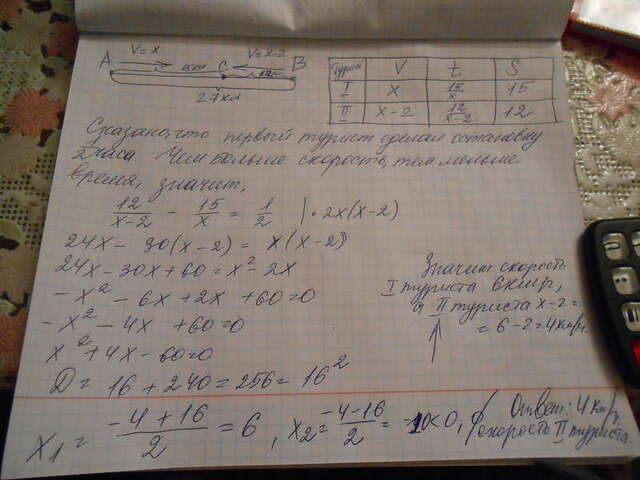 V=x V=x-2
A 15км C 12км B
27км
Турист V t S
I x 15/x 15
II x-2 12/x-2 12
Сказано, что первый турист сделал остановку
часа Чем больше скорость, тем меньше
время, значит,
12/x-2 - 15/x = 1/2 |·2x(x-2)
24x - 30(x-2) = x(x-2)
24x-30x+60=x²-2x
-x²-6x+2x+60=0
-x²-4x+60=0
x²+4x-60=0
D=16+240=256=16²
x₁= -4+16/2 =6, x₂= -4-16/2 = -10<0,
Значит скорость
I туриста 6 км/ч,
а II туриста x-2=
=6-2=4км/ч.
Ответ: 4 км/ч.
скорость II туриста